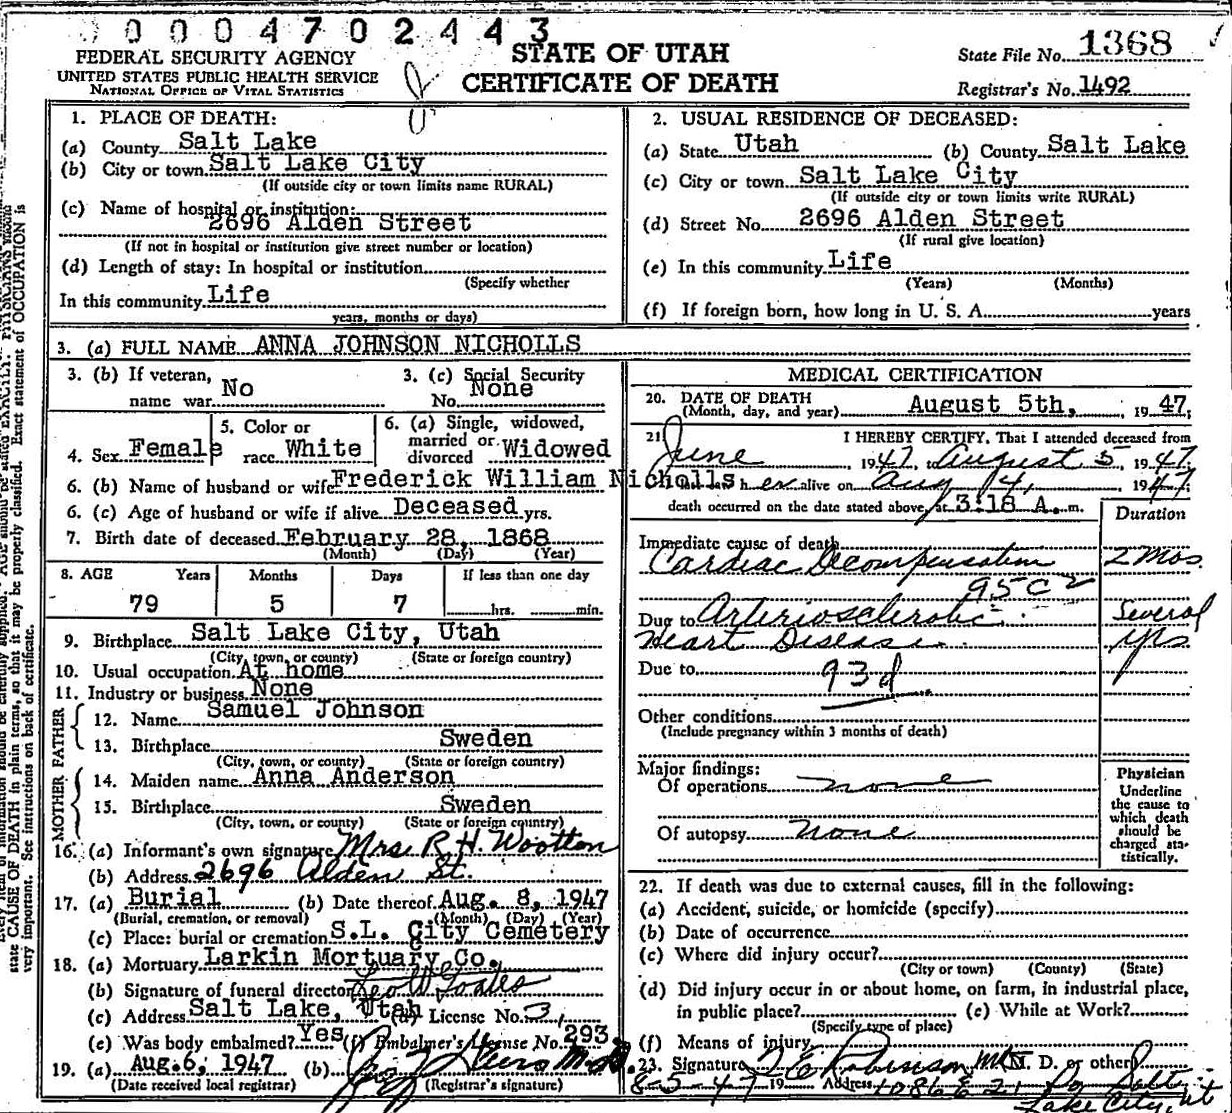 0004702443
FEDERAL SECURITY AGENCY
UNITED STATES PUBLIC HEALTH SERVICE
NATIONAL OFFICE OF VITAL STATISTICS
STATE OF UTAH
CERTIFICATE OF DEATH
State File No. 1368
Registrar's No. 1492
1. PLACE OF DEATH:
(a) County Salt Lake
(b) City or town Salt Lake City
(If outside city or town limits name RURAL)
(c) Name of hospital or institution:
2696 Alden Street
(If not in hospital or institution give street number or location)
(d) Length of stay: In hospital or institution
(Specify whether
In this community Life
years, months or days)
2. USUAL RESIDENCE OF DECEASED:
(a) State Utah (b) County Salt Lake
(c) City or town Salt Lake City
(If outside city or town limits write RURAL)
(d) Street No. 2696 Alden Street
(If rural give location)
(e) In this community Life
(Years) (Months)
(f) If foreign born, how long in U. S. A. years
3. (a) FULL NAME ANNA JOHNSON NICHOLLS
3. (b) If veteran, name war No
3. (c) Social Security No. None
4. Sex Female
5. Color or race White
6. (a) Single, widowed, married or divorced Widowed
6. (b) Name of husband or wife Frederick William Nicholls
6. (c) Age of husband or wife if alive Deceased yrs.
7. Birth date of deceased February 28, 1868
(Month) (Day) (Year)
8. AGE Years Months Days If less than one day
79 5 7 hrs. min.
9. Birthplace Salt Lake City, Utah
(City, town, or county) (State or foreign country)
10. Usual occupation At home
11. Industry or business None
FATHER
12. Name Samuel Johnson
13. Birthplace Sweden
(City, town, or county) (State or foreign country)
MOTHER
14. Maiden name Anna Anderson
15. Birthplace Sweden
(City, town, or county) (State or foreign country)
16. (a) Informant's own signature Mrs. R. H. Wootton
(b) Address 2696 Alden St.
17. (a) Burial (b) Date thereof Aug. 8, 1947
(Burial, cremation, or removal) (Month) (Day) (Year)
(c) Place: burial or cremation S.L. City Cemetery
18. (a) Mortuary Larkin Mortuary Co.
(b) Signature of funeral director
(c) Address Salt Lake, Utah (d) License No. 3,
(e) Was body embalmed? Yes (f) Embalmer's License No. 293
19. (a) Aug. 6, 1947 (b)
(Date received local registrar) (Registrar's signature)
MEDICAL CERTIFICATION
20. DATE OF DEATH
(Month, day, and year) August 5th, 1947
21. I HEREBY CERTIFY, That I attended deceased from
June, 1947, to August 5, 1947
h er alive on Aug 4, 1947
death occurred on the date stated above, at 3:18 A. m.
Duration
Immediate cause of death
Cardiac Decompensation 2 Mos.
95C2
Due to Arteriosclerotic Several
Heart Disease yrs.
Due to 93d
Other conditions
(Include pregnancy within 3 months of death)
Major findings:
Of operations none
Of autopsy none
Physician
Underline
the cause to
which death
should be
charged sta-
tistically.
22. If death was due to external causes, fill in the following:
(a) Accident, suicide, or homicide (specify)
(b) Date of occurrence
(c) Where did injury occur?
(City or town) (County) (State)
(d) Did injury occur in or about home, on farm, in industrial place,
in public place? (e) While at Work?
(Specify type of place)
(f) Means of injury
23. Signature E Robinson M.D. (M. D. or other)
8-5-47 19 Address 1086 E 21 So Salt
Lake City, Ut
state CAUSE OF DEATH in plain terms, so that it may be properly classified. Exact statement of OCCUPATION is
very important. See instructions on back of certificate.